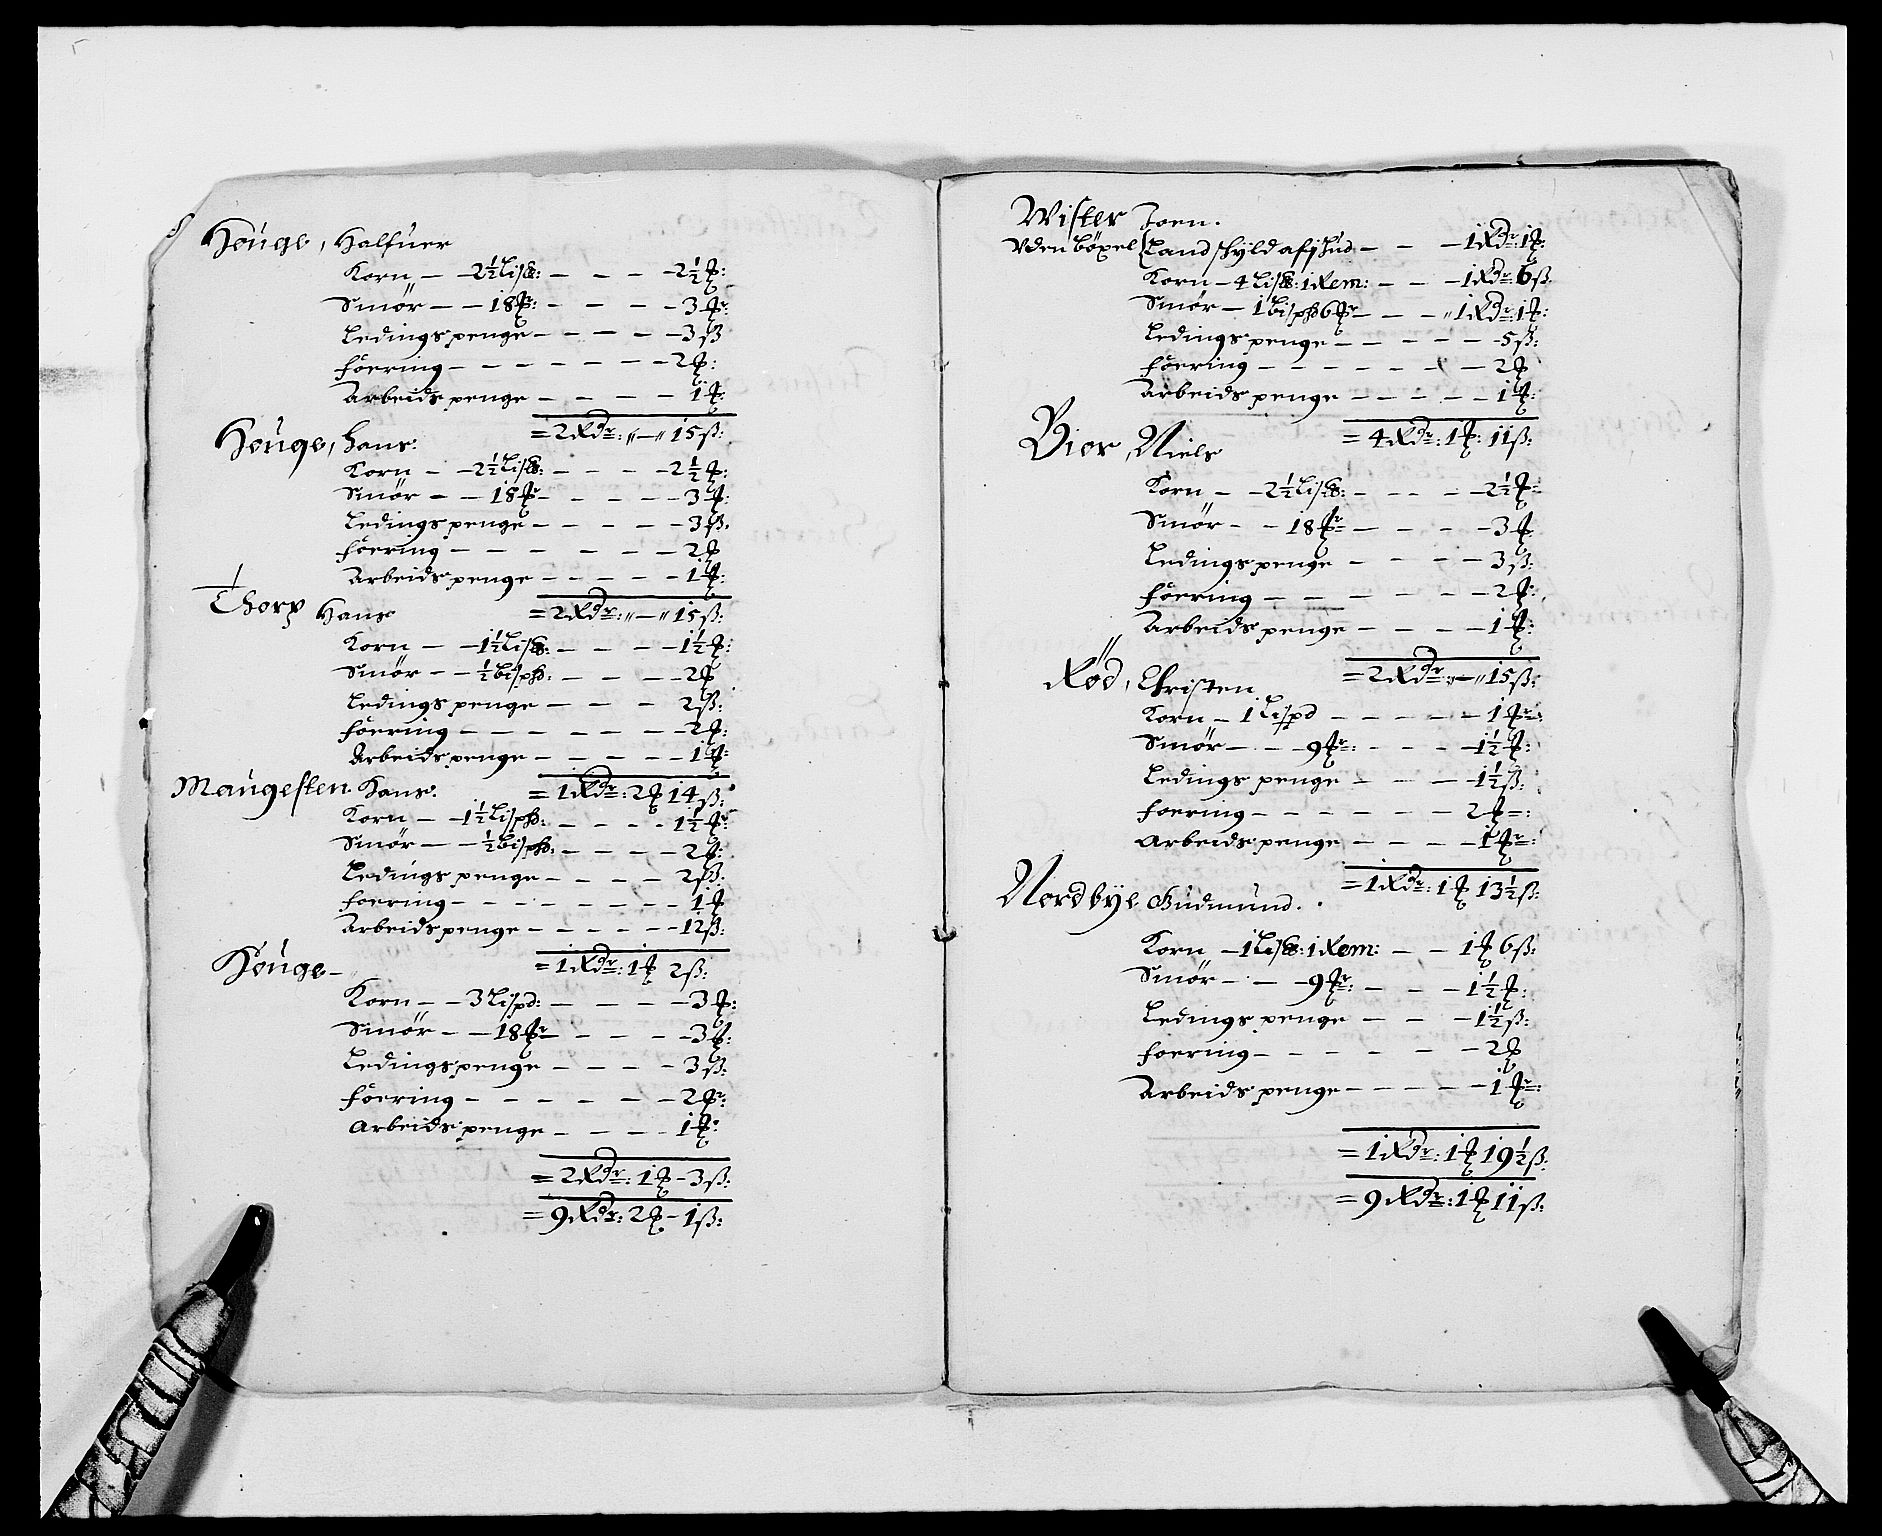 Houge, Halfuer
Korn — 2½ Lispd: — — — 2½ ort:
Smör — 18 mrk: — — — 3 ort:
Ledings penge — — — 3 ß
foering — — — 2 ort:
Arbeids penge — — — 1 ort:
= 2 Rdr: „ — „ 15 ß:
Houge, Hans:
Korn — 2½ Lispd: — — — 2½ ort:
Smör — 18 mrk — — — 3 ort:
Ledings penge — — — 3 ß.
foering — — — 2 ort
Arbeids penge — — — 1 ort:
= 2 Rdr: „ — „ 15 ß:
Thorp Hans
Korn — 1½ Lispd: — — — 1½ ort:
Smör — ½ Bispd: — — — 2 ort
Ledings penge — — — 2 ß:
foering — — — 2 ort:
Arbeids penge — — — 1 ort:
= 1 Rdr: 2 ort 14 ß:
Maugesten Hans:
Korn — 1½ Lispd: — — — 1½ ort:
Smör — ½ Bispd: — — — 2 ort:
Ledings penge — — — 2 ß:
foering — — — 1 ort
Arbeids penge — — — 12 ß:
= 1 Rdr: 1 ort 2 ß:
Houge —
Korn — 3 Lispd: — — — 3 ort:
Smör — 18 mrk — — — 3 ort:
Ledings penge — — — 3 ß:
foering — — — 2 ort:
Arbeids penge — — — 1 ort:
= 2 Rdr: 1 ort — 3 ß:
= 9 Rdr: 2 ort — 1 ß:
Wister Joen.
Vden böxel { Landschyld aff — — — 1 Rdr: 1 ort:
Korn — 4 Lispd: 1 Rem: — — — 1 Rdr 6 ß:
Smör — 1 Bispd 6 mrk — — — 1 Rdr: 1 ort:
Ledings penge — — — 5 ß:
foering — — — 2 ort
Arbeids penge — — — 1 ort:
= 4 Rdr: 1 ort: 11 ß:
Bior, Niels
Korn — 2½ Lispd: — — — 2½ ort:
Smör — 18 mrk — — — 3 ort
Ledings penge — — — 3 ß:
foering — — — 2 ort:
Arbeids penge — — — 1 ort:
= 2 Rdr: „ — „ 15 ß:
Röd, Christen
Korn — 1 Lispd — — — 1 ort:
Smör — 9 mrk: — — — 1½ ort:
Ledings penge — — — 1½ ß:
foering — — — 2 ort:
Arbeids penge — — — 1 ort:
= 1 Rdr: 1 ort 13½ ß:
Nordbye Gudmund.
Korn — 1 Lispd: 1 Rem: — — 1 ort 6 ß:
Smör — 9 mrk: — — — 1½ ort:
Ledings penge — — — 1½ ß:
foering — — — 2 ort
Arbeids penge — — — 1 ort:
= 1 Rdr: 1 ort 19½ ß:
= 9 Rdr: 1 ort 11 ß: